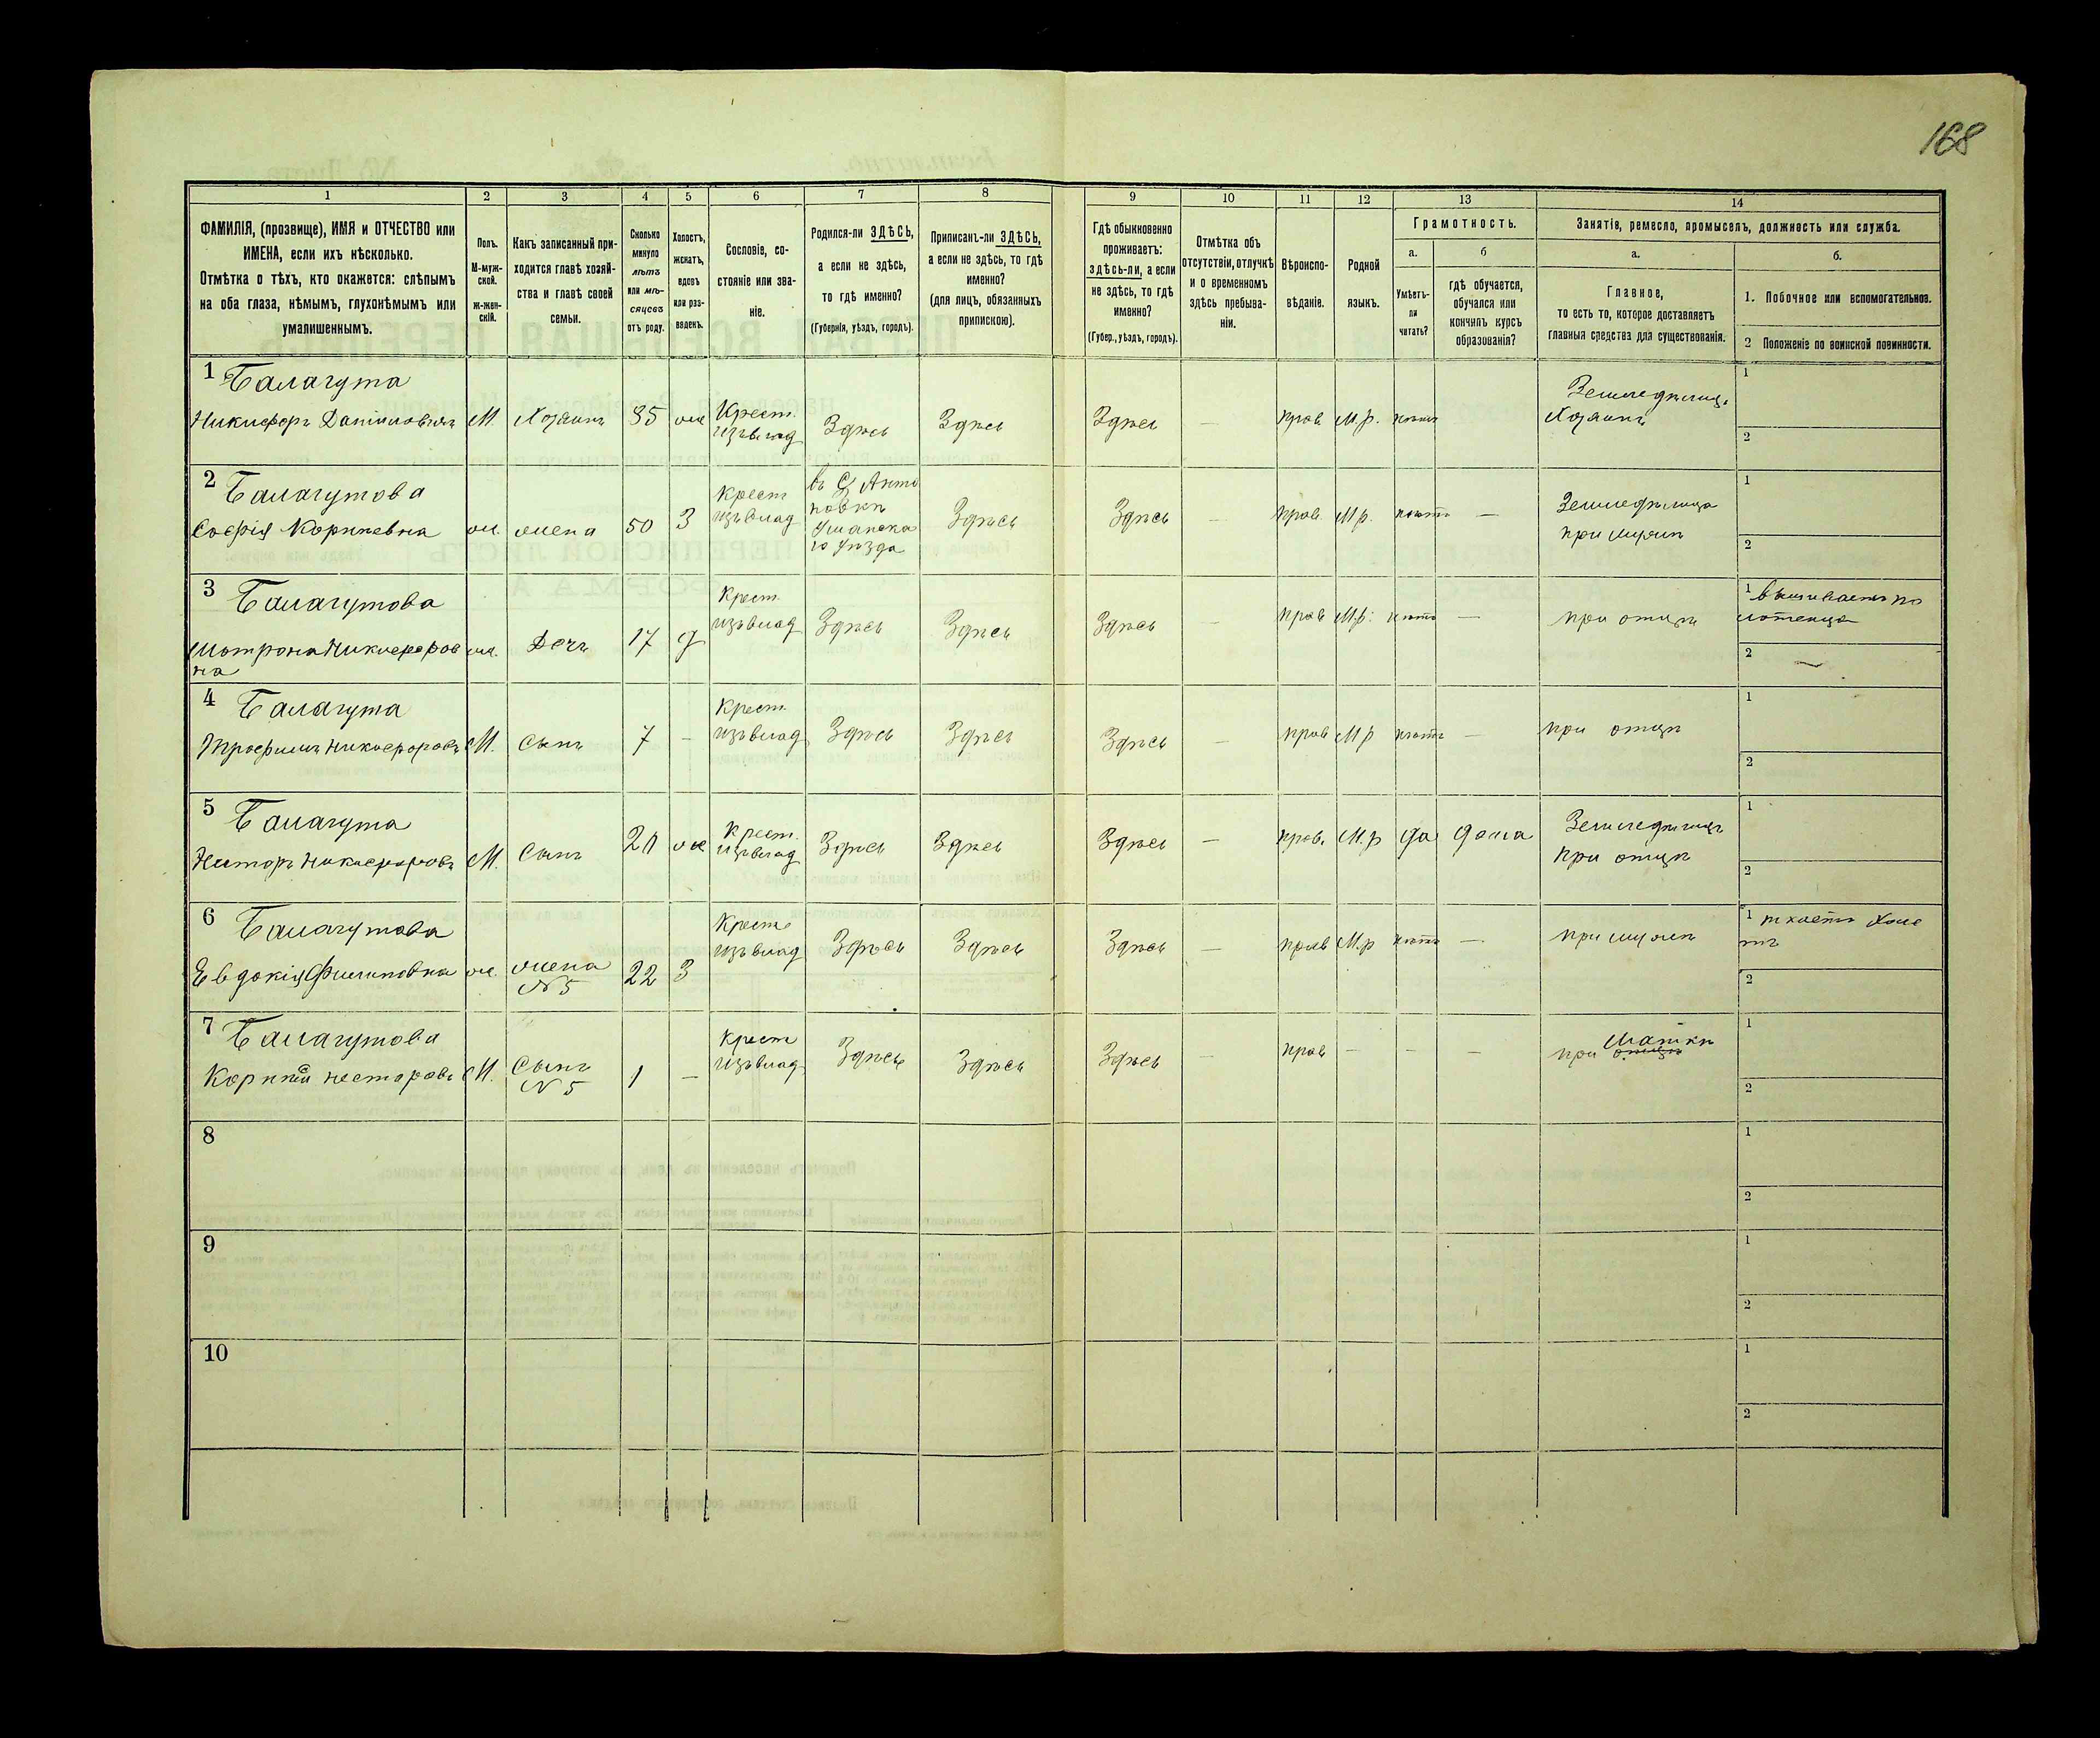 168
1
2
3
4
5
6
7
8
9
10
11
12
13
14
ФАМИЛІЯ, (прозвище), ИМЯ и ОТЧЕСТВО или
ИМЕНА, если ихъ нѣсколько.
Отмѣтка о тѣхъ, кто окажется: слѣпымъ
на оба глаза, нѣмымъ, глухонѣмымъ или
умалишеннымъ.
Полъ.
М-муж-
ской.
ж-жен-
скій.
Какъ записанный при-
ходится главѣ хозяй-
ства и главѣ своей
семьи.
Сколько
минуло
лѣтъ
или мѣ-
сяцевъ
отъ роду.
Холостъ,
женатъ,
вдовъ
или раз-
веденъ.
Сословіе, со-
стояніе или зва-
ніе.
Родился-ли ЗДѢСЬ,
а если не здѣсь,
то гдѣ именно?
(Губернія, уѣздъ, городъ).
Приписанъ-ли ЗДѢСЬ,
а если не здѣсь, то гдѣ
именно?
(для лицъ, обязанныхъ
припискою).
Гдѣ обыкновенно
проживаетъ:
здѣсь-ли, а если
не здѣсь, то гдѣ
именно?
(Губер., уѣздъ, городъ).
Отмѣтка объ
отсутствіи, отлучкѣ
и о временномъ
здѣсь пребыва-
ніи.
Вѣроиспо-
вѣданіе.
Родной
языкъ.
Грамотность.
а.
Умѣетъ-
ли
читать?
б
гдѣ обучается,
обучался или
кончилъ курсъ
образованія?
Занятіе, ремесло, промыселъ, должность или служба.
а.
Главное,
то есть то, которое доставляетъ
главныя средства для существованія.
б.
1. Побочное или вспомогательное.
2 Положеніе по воинской повинности.
1 Балагута
Никифоръ Даніиловичъ
М.
Хозяинъ
ж
Крест.
изъ влад
Здѣсь
Здѣсь
Здѣсь
—
прав.
М.р.
нѣтъ
Земледѣлец.
Хозяинъ
1
2
2 Балагутова
Софія Корнѣевна
ж.
жена
50
З
Крест
изъ влад
въ С Анто
новкѣ
Уманска
го уѣзда
Здѣсь
Здѣсь
—
прав.
М.р.
нѣтъ
—
Земледѣлица
при мужѣ
1
2
3 Балагутова
Мотрона Никифоров
на
ж.
Дочь
17
д
Крест
изъ влад
Здѣсь
Здѣсь
Здѣсь
—
прав
М.р.
нѣтъ
—
при отцѣ
1 вышиваетъ по
лотенца
2 —
4 Балагута
Трофимъ Никифоровъ
М.
сынъ
7
—
Крест
изъ влад
Здѣсь
Здѣсь
Здѣсь
—
прав
М.р
нѣтъ
—
при отцѣ
1
2
5 Балагута
Несторъ Никифоровъ
М.
сынъ
ж
Крест.
изъ влад
Здѣсь
Здѣсь
Здѣсь
—
прав.
М.р
да
дома
Земледѣлецъ
при отцѣ
1
2
6 Балагутова
Евдокія Филиповна
ж.
жена
№ 5
22
З
Крест
изъ влад
Здѣсь
Здѣсь
Здѣсь
—
прав
М.р
нѣтъ
—
при мужѣ
1 ткаетъ холс
тъ
2
7 Балагутова
Корнѣй Несторовъ
М.
Сынъ
№ 5
1
—
Крест
изъ влад
Здѣсь
Здѣсь
Здѣсь
—
прав
—
—
—
при отцѣ маткѣ
1
2
8
1
2
9
1
2
10
1
2